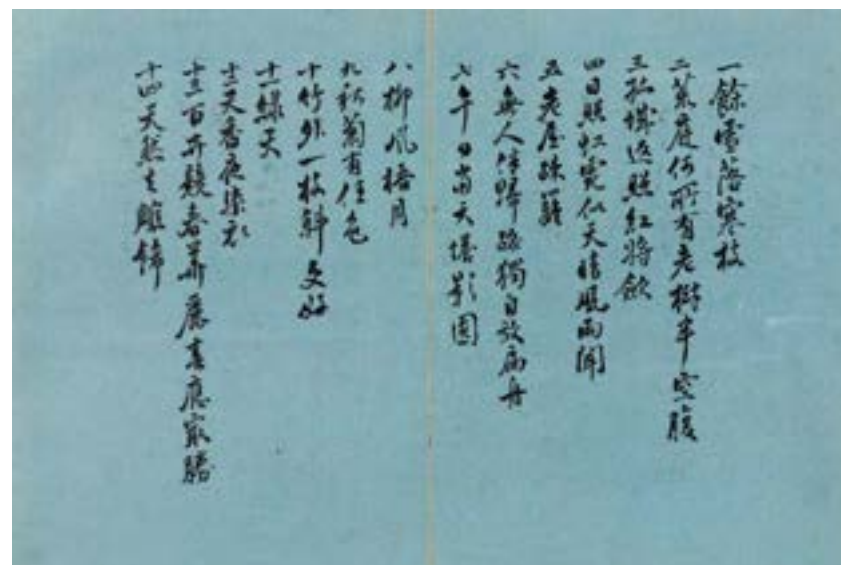 一餘雪落寒枝
二荒庭何所有老樹半空腹
三孤城返照紅將歛
四日照虹霓似天晴風雨聞
五老屋疎籬
六無人伴歸路獨自放扁舟
七午日當天塔影圓
八柳風梧月
九秋菊有佳色
十竹外一枝斜更好
十一綠天
十二天香夜染衣
十三百卉競春華麗春應最勝
十四天然去雕飾